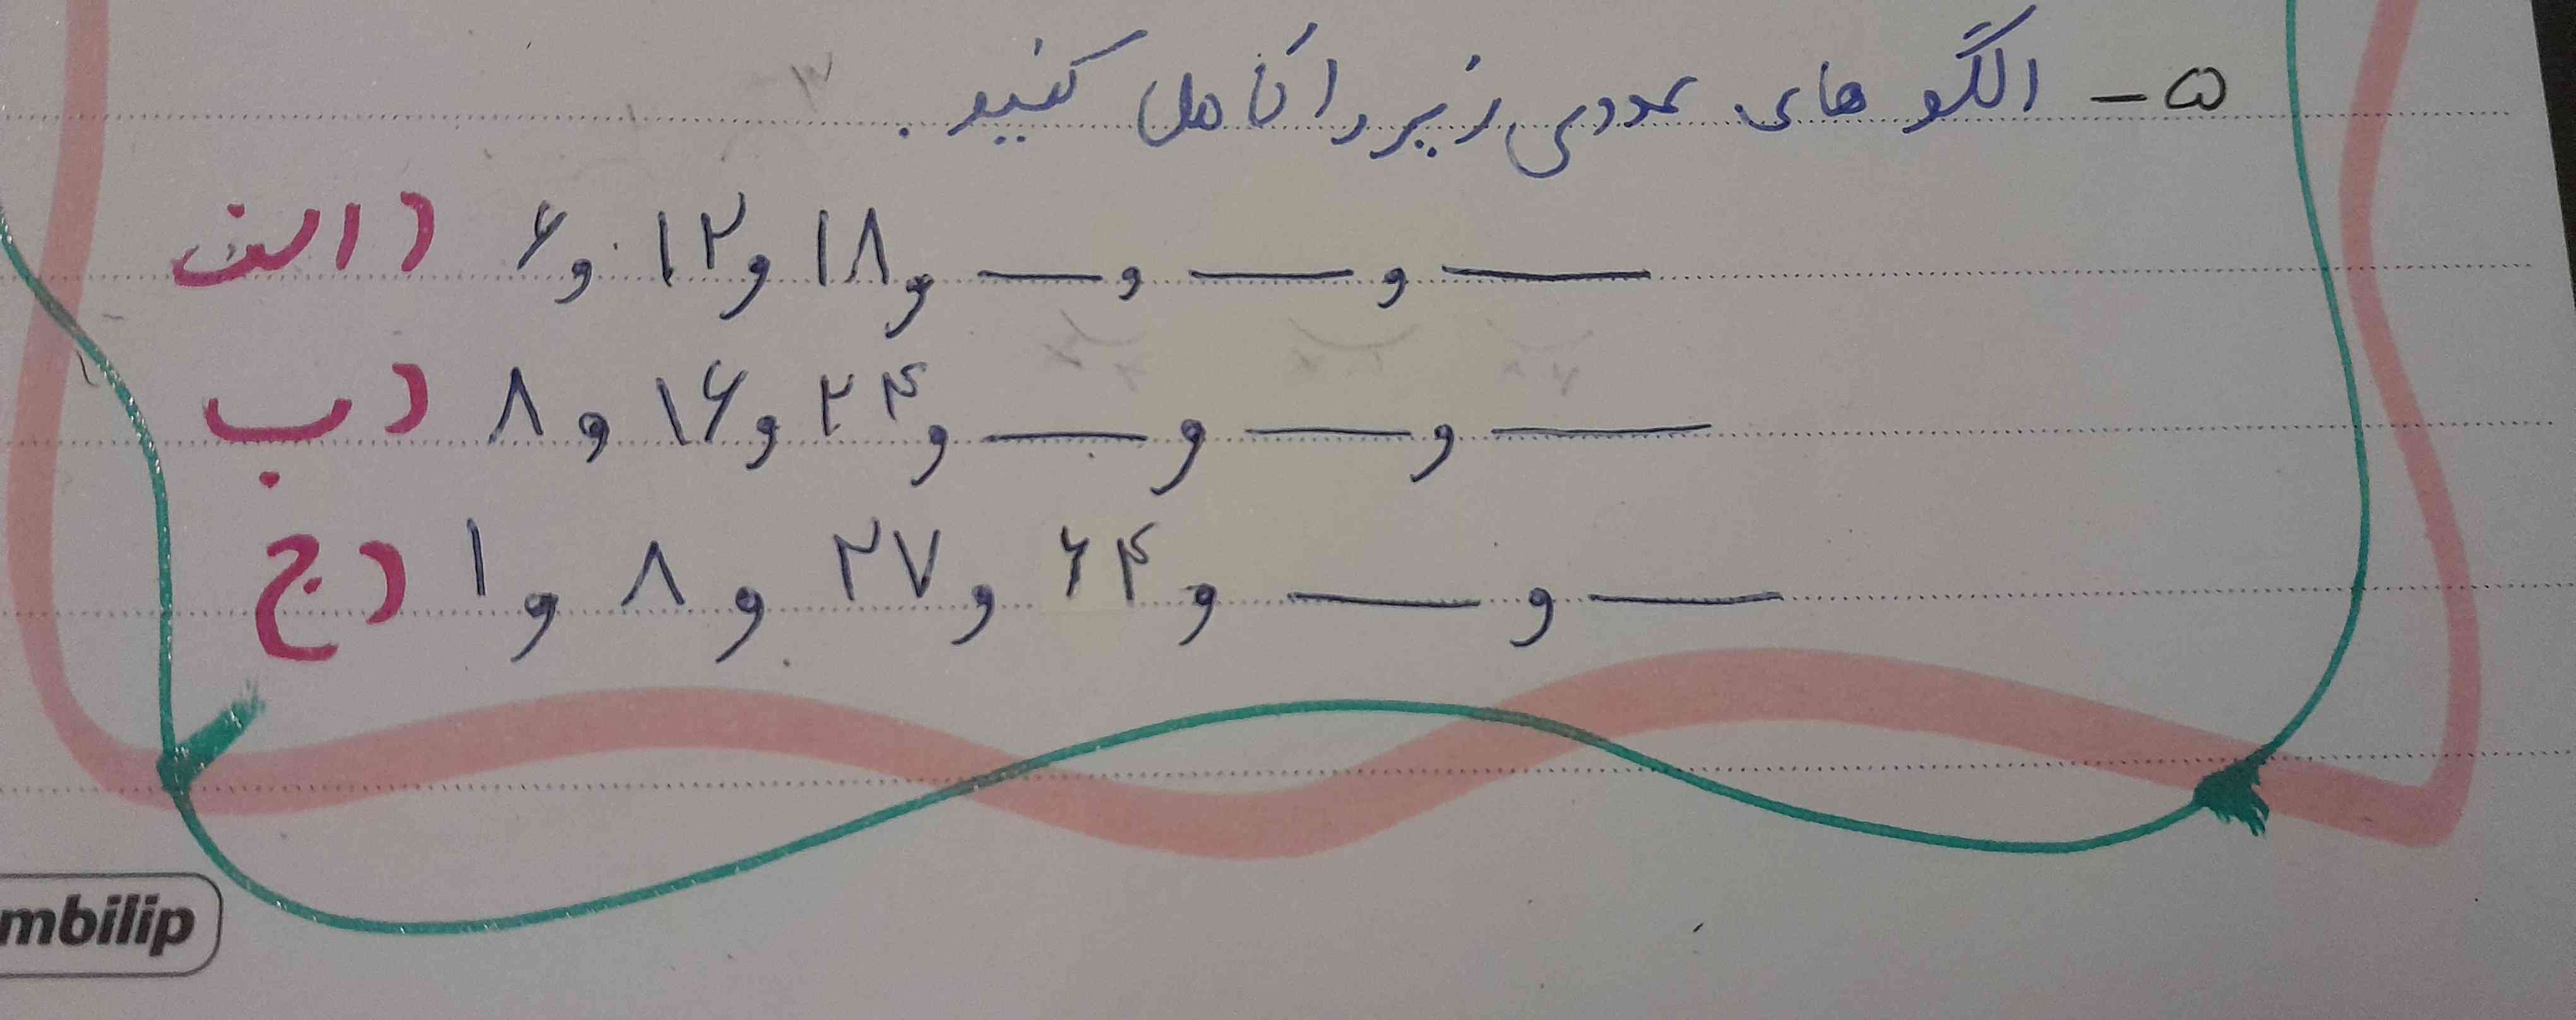 ۵- الگو های عددی زیر را کامل کنید .
الف) ۶ و ۱۲ و ۱۸ و __ و __ و __
ب) ۸ و ۱۶ و ۲۴ و __ و __ و __
ج) ۱ و ۸ و ۲۷ و ۶۴ و __ و __
mbilip